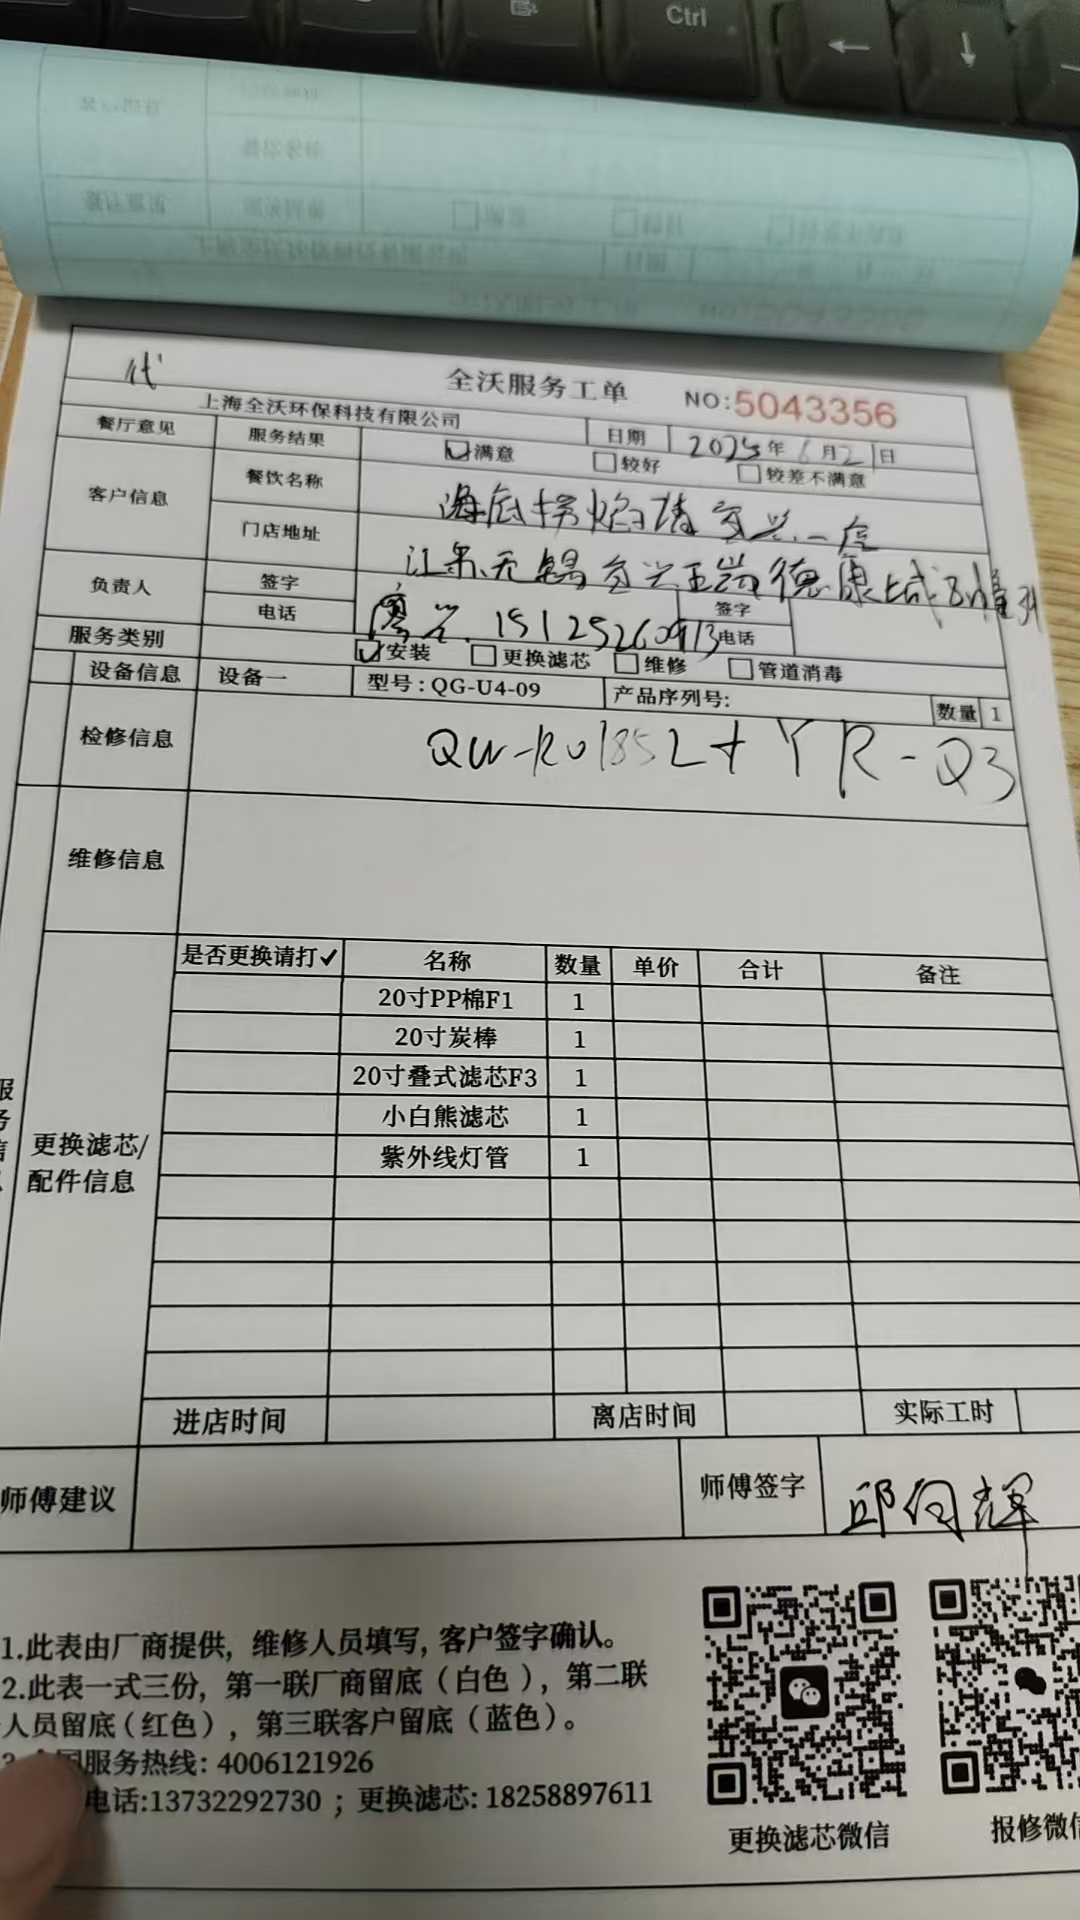 Ctrl
代
全沃服务工单 NO:5043356
上海全沃环保科技有限公司 日期 2025年6月21日
餐厅意见 服务结果 满意 较好 较差不满意
客户信息 餐饮名称 海底捞
门店地址 江苏无锡
负责人 签字 签字
电话 15125260913 电话
服务类别 安装 更换滤芯 维修 管道消毒
设备信息 设备一 型号:QG-U4-09 产品序列号: 数量 1
检修信息 YR-Q3
维修信息
是否更换请打✓ 名称 数量 单价 合计 备注
20寸PP棉F1 1
20寸炭棒 1
20寸叠式滤芯F3 1
小白熊滤芯 1
紫外线灯管 1
更换滤芯/
配件信息
进店时间 离店时间 实际工时
师傅建议 师傅签字 邱向辉
1.此表由厂商提供, 维修人员填写, 客户签字确认。
2.此表一式三份, 第一联厂商留底(白色), 第二联
人员留底(红色), 第三联客户留底(蓝色)。
服务热线: 4006121926
电话:13732292730 ; 更换滤芯: 18258897611
更换滤芯微信 报修微信